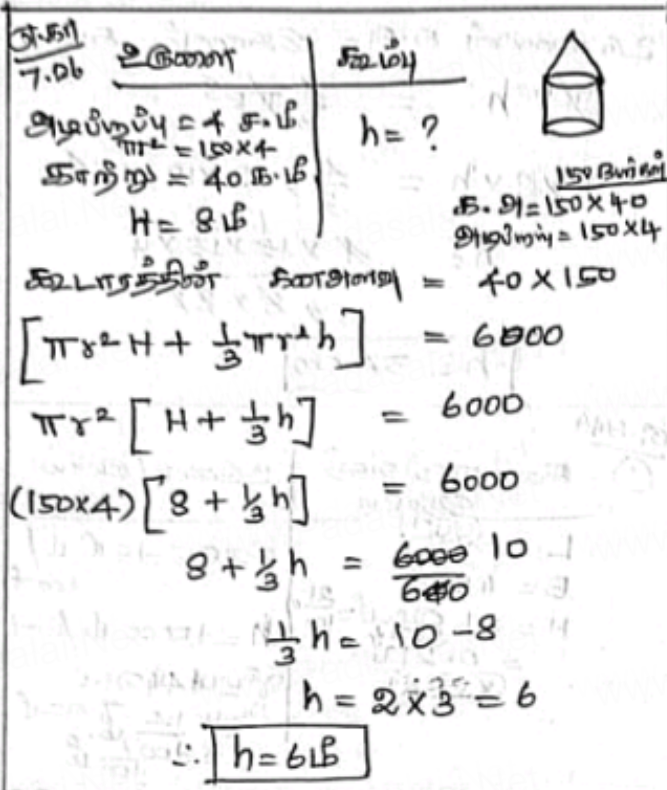 எ.கா
7.06 உருளை கூம்பு
அடிப்பரப்பு = 4 ச.மீ
πr² = 150×4
h = ?
காற்று = 40 க.மீ
H = 8மீ
150 நபர்கள்
க.அ = 150×40
அடிப்பரப்பு = 150×4
கூடாரத்தின் கனஅளவு = 40×150
[πr²H + 1/3 πr²h] = 6000
πr² [H + 1/3 h] = 6000
(150×4) [8 + 1/3 h] = 6000
8 + 1/3 h = 6000/600 10
1/3 h = 10 - 8
h = 2×3 = 6
∴ h = 6மீ